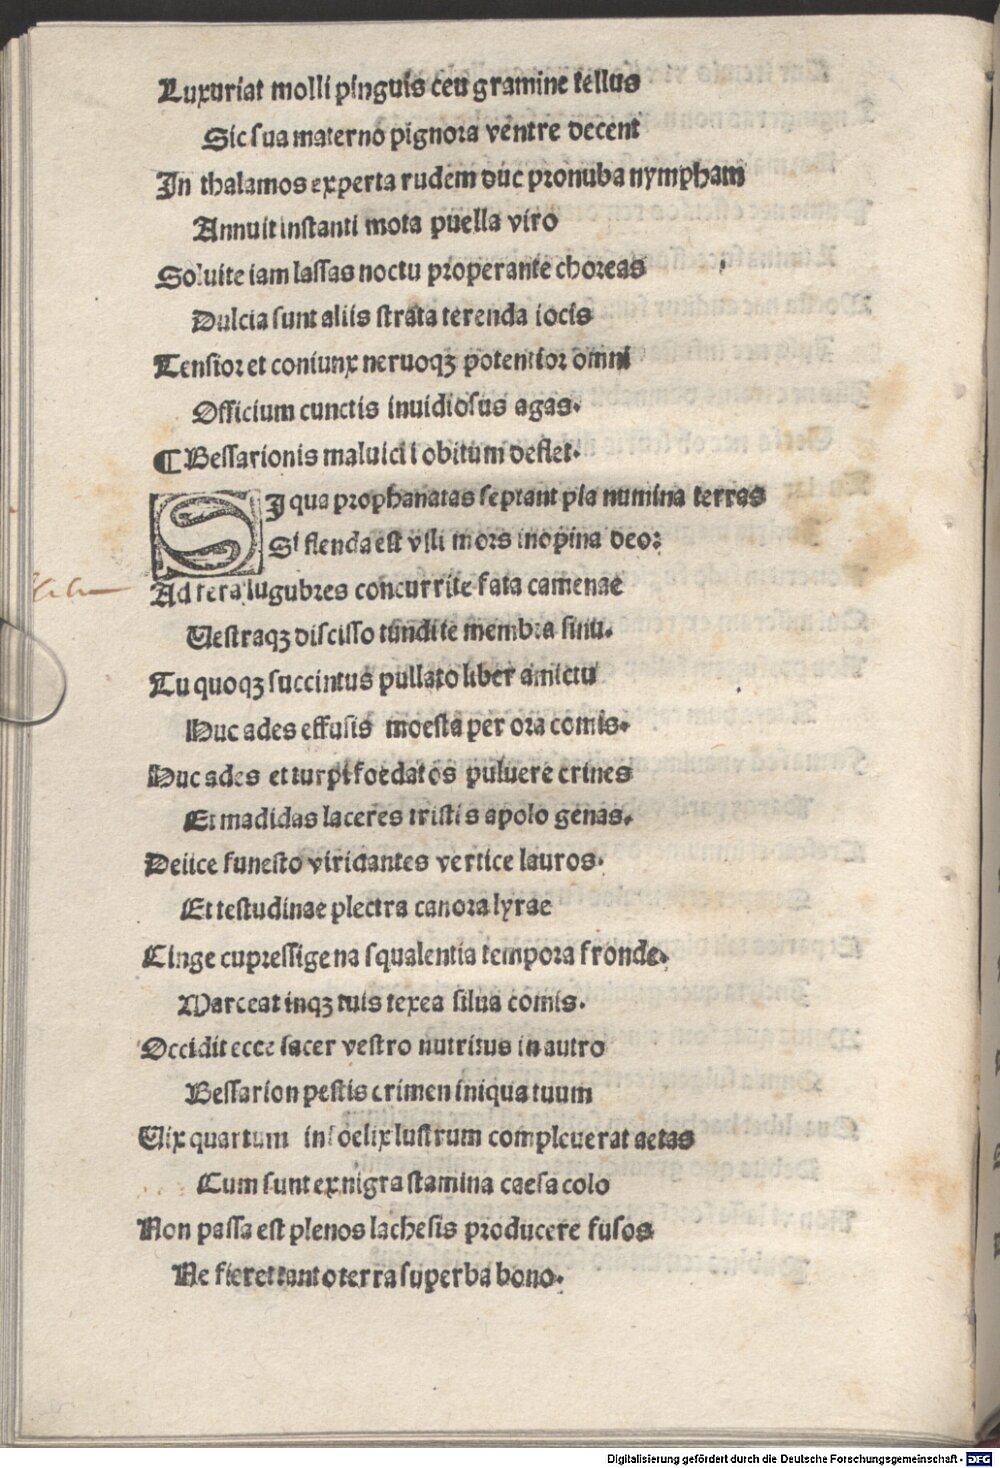 Luxuriat molli pinguis ceu gramine tellus
Sic sua materno pignora ventre decent
In thalamos experta rudem duc pronuba nympham
Annuit instanti mota puella viro
Soluite iam lassas noctu properante choreas
Dulcia sunt aliis strata terenda iocis
Tensior et coniunx neruoqꝫ potentior omni
Officium cunctis inuidiosus agas.
¶ Bessarionis maluicii obitum deflet.
SI qua prophanatas septant pia numina terras
Si flenda est vlli mors inopina deo:
Ad fera lugubres concurrite fata camenae
Vestraqꝫ discisso tundite membra sinu.
Tu quoqꝫ succintus pullato liber amictu
Huc ades effusis moesta per ora comis.
Huc ades et turpi foedatos puluere crines
Et madidas laceres tristis apolo genas.
Deiice funesto viridantes vertice lauros.
Et testudinae plectra canora lyrae
Cinge cupressigena squalentia tempora fronde.
Marceat inqꝫ tuis texea silua comis.
Occidit ecce sacer vestro nutritus in autro
Bessarion pestis crimen iniqua tuum
Vix quartum infoelix lustrum compleuerat aetas
Cum sunt ex nigra stamina caesa colo
Non passa est plenos lachesis producere fusos
Ne fieret tanto terra superba bono.
Digitalisierung gefördert durch die Deutsche Forschungsgemeinschaft - DFG